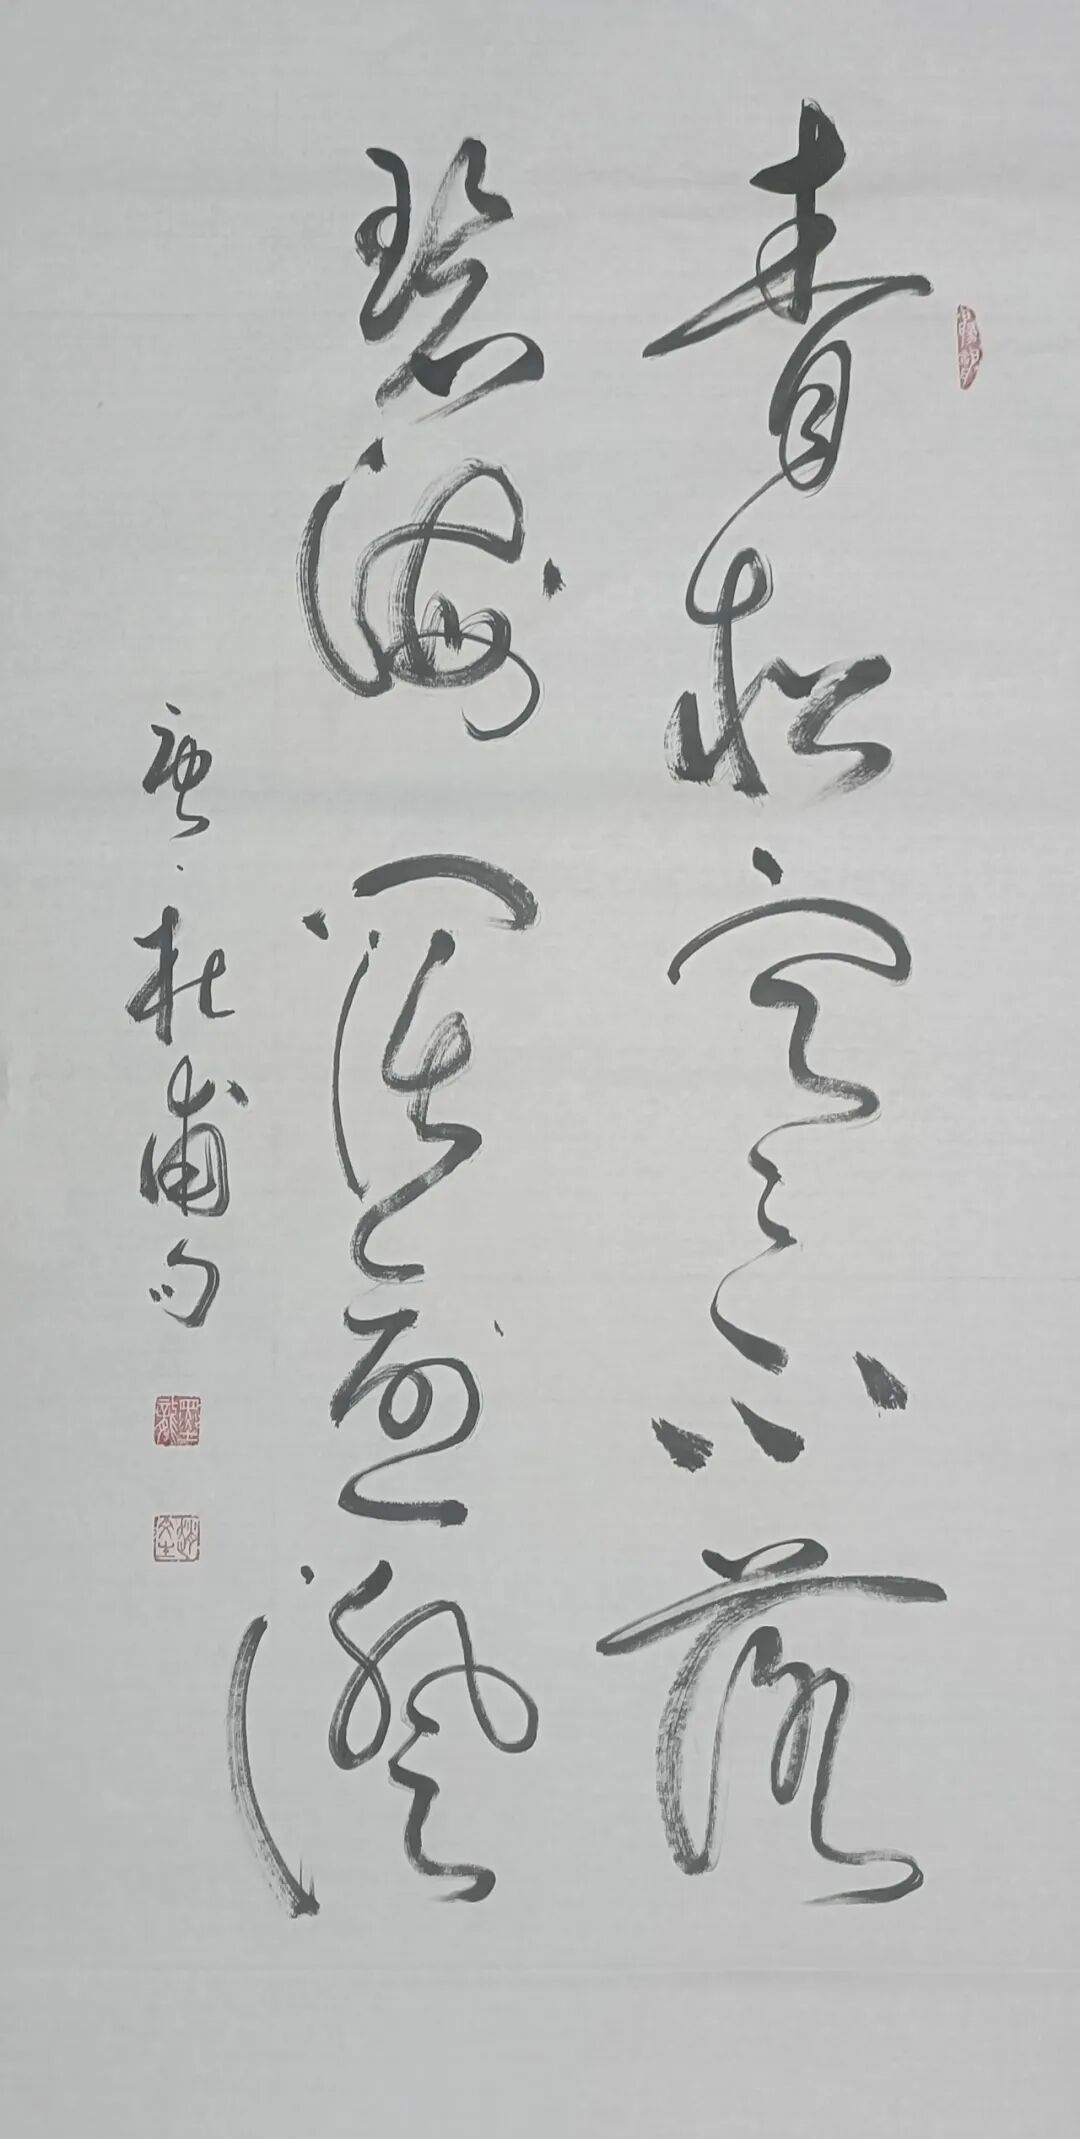 青松寒不落
碧海阔逾澄
唐杜甫句